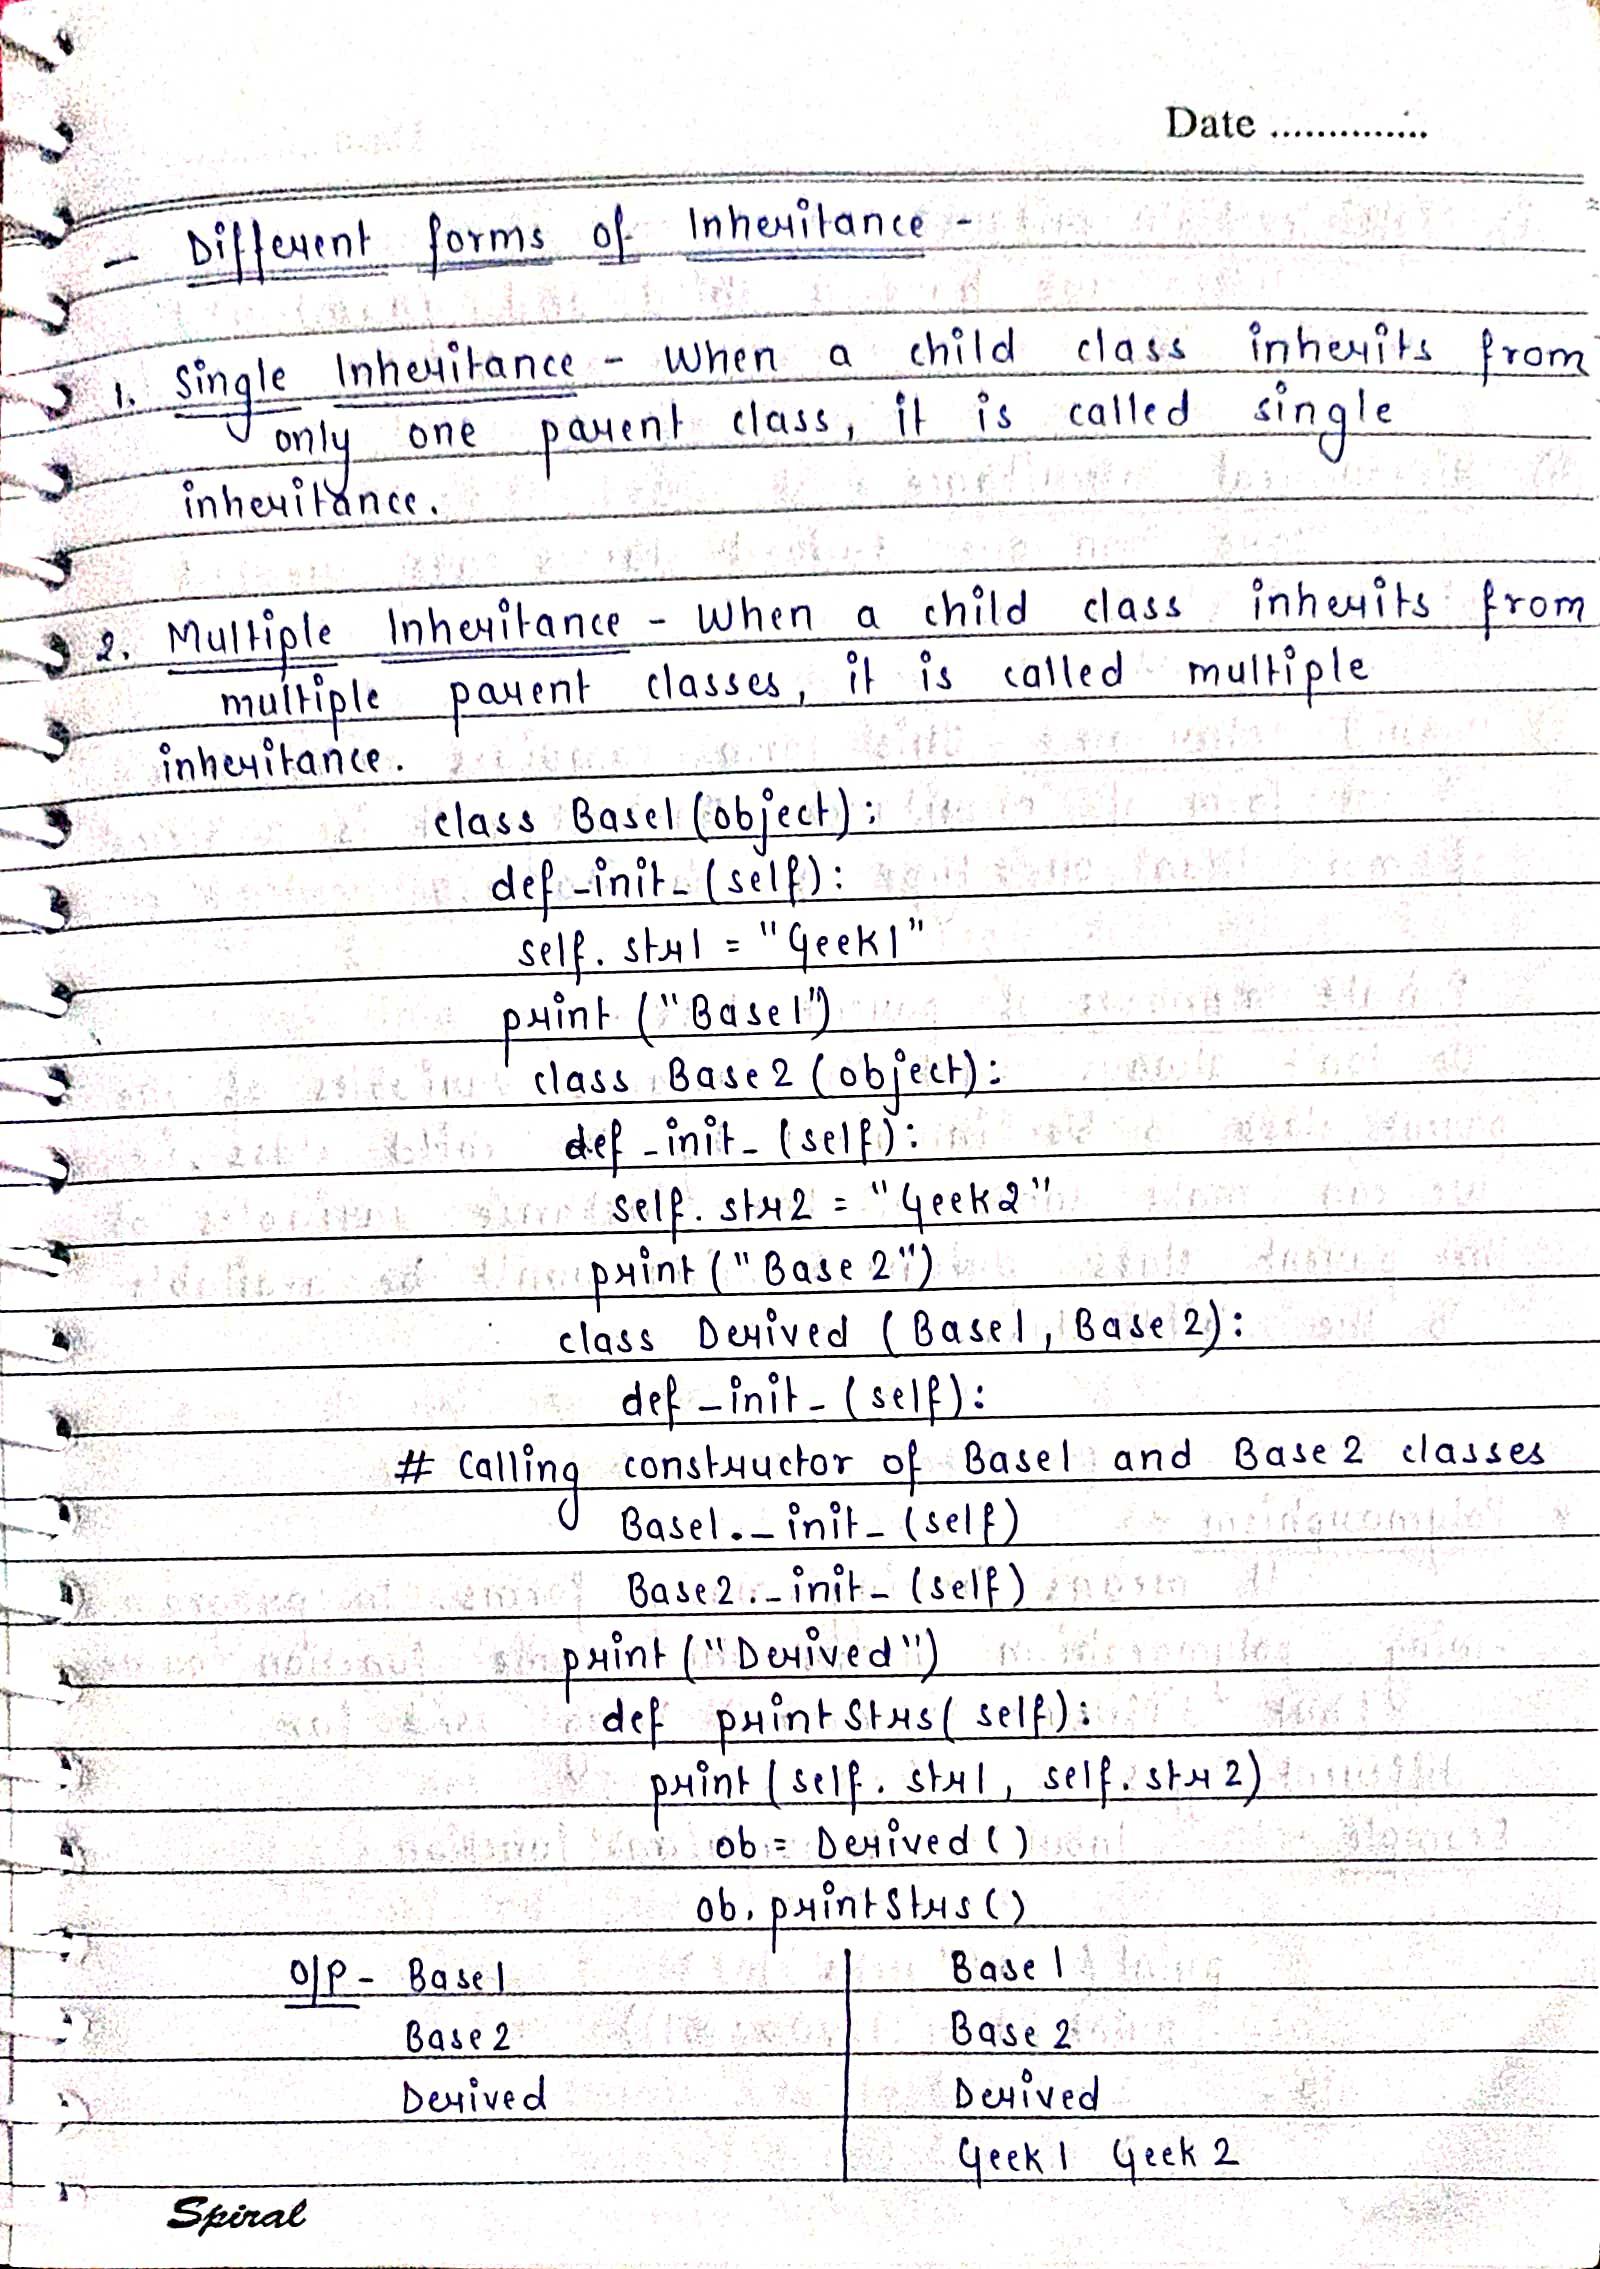 Date ..............
- Different forms of Inheritance -
1. Single Inheritance - When a child class inherits from
only one parent class, it is called single
inheritance.
2. Multiple Inheritance - When a child class inherits from
multiple parent classes, it is called multiple
inheritance.
class Base1 (object):
def _init_ (self):
self. str1 = "Geek1"
print ("Base1")
class Base2 (object):
def _init_ (self):
self. str2 = "Geek2"
print ("Base2")
class Derived (Base1, Base2):
def _init_ (self):
# Calling constructor of Base1 and Base2 classes
Base1._init_ (self)
Base2._init_ (self)
print ("Derived")
def printStrs(self):
print (self. str1, self. str2)
ob = Derived ()
ob. printStrs ()
O/P - Base1 Base1
Base2 Base2
Derived Derived
Geek1 Geek2
Spiral